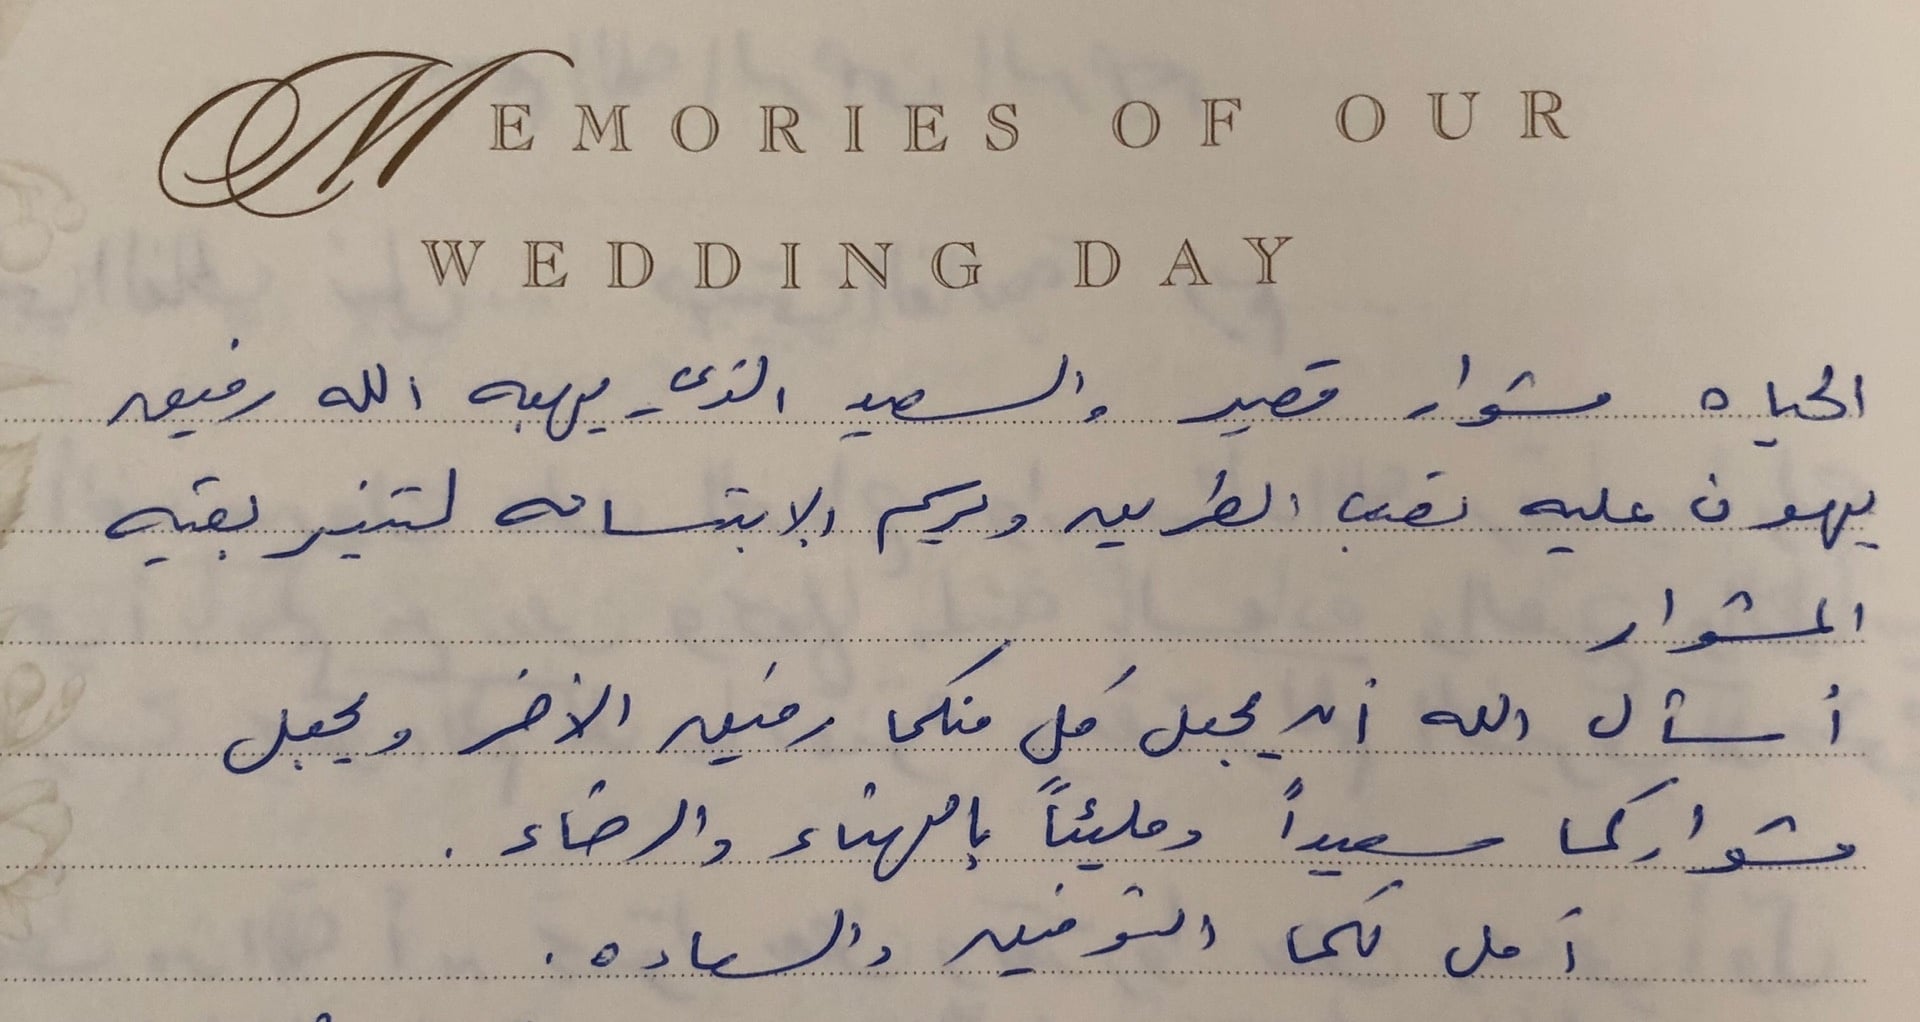 MEMORIES OF OUR
WEDDING DAY
الحياه مشوار قصير والسعيد الذي يهبه الله رفيق
يهون عليه تعب الطريق ويرسم الابتسامه لتنير بقيه
المشوار
أسأل الله أن يجعل كل منكما رفيق الأخر ويجعل
مشواركما سعيداً ومليئاً بالهناء والرضاء .
أمل لكما التوفيق والسعاده .